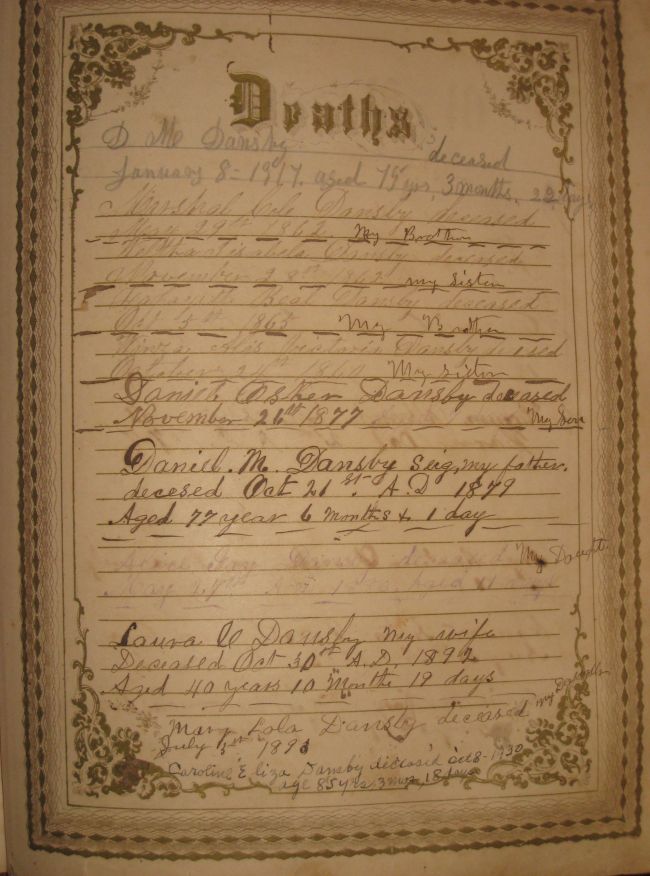 Deaths
D M Dansby deceased
January 8- 1917. aged 75 yrs, 3 months, 22 days
Marshal Cole Dansby deceased
29th 1862 My Brother
Isabela Dansby deceased
November 28th 1862 my Sister
Beal Dansby deceased
Oct 5th 1865 My Brother
Victoria Dansby deceased
October 24th My Sister
Daniel Osker Dansby deceased
November 26th 1877 My Son
Daniel. M. Dansby Seig, my father.
decesed Oct 21st. A.D 1879
Aged 77 year 6 months & 1 day
deceased My Daught
May Aged
Laura V Dansby my wife
Deceased Oct 30th A.D. 1892
Aged 40 years 10 Months 19 days
Mary Lola Dansby deceased my Daughter
July 1st
Caroline Eliza Dansby diseased Oct 8-1930
age 85 yrs, 3 mos, 18 days